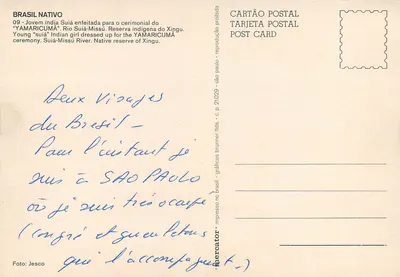 BRASIL NATIVO
09 - Jovem índia Suiá enfeitada para o cerimonial do
"YAMARICUMÃ". Rio Suiá-Missú. Reserva indígena do Xingu.
Young "suiá" Indian girl dressed up for the YAMARICUMÃ
ceremony. Suiá-Missú River. Native reserve of Xingu.
Deux Visages
du Bresil -
Pour l'instant je
suis à SAO PAULO
où je suis très occupé
(congrès et
qui l'accompagnent.)
Foto: Jesco
CARTÃO POSTAL
TARJETA POSTAL
POST CARD
mercator - impresso no brasil - gráficos brunner ltda. - c. p. 21.029 - são paulo - reprodução proibida